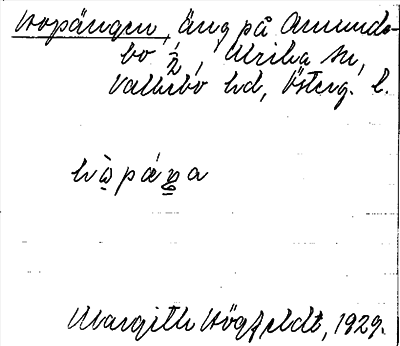 Kopängen, äng på Amunde-
bo ½, Ulrika sn,
Valkebo hd, Österg. l.
Margith Högfeldt, 1929.